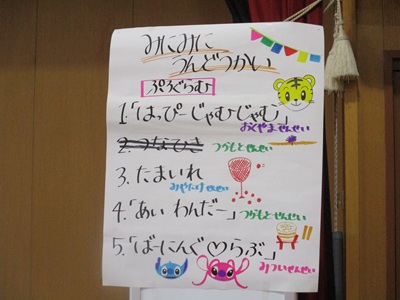 みにみに
うんどうかい
ぷろぐらむ
1.「はっぴーじゃむじゃむ」
おくやませんせい
2. つなひき つかもとせんせい
3. たまいれ
みやたけせんせい
4.「あい わんだー」
つかもとせんせい
5.「ばーにんぐ♡らぶ」
みついせんせい